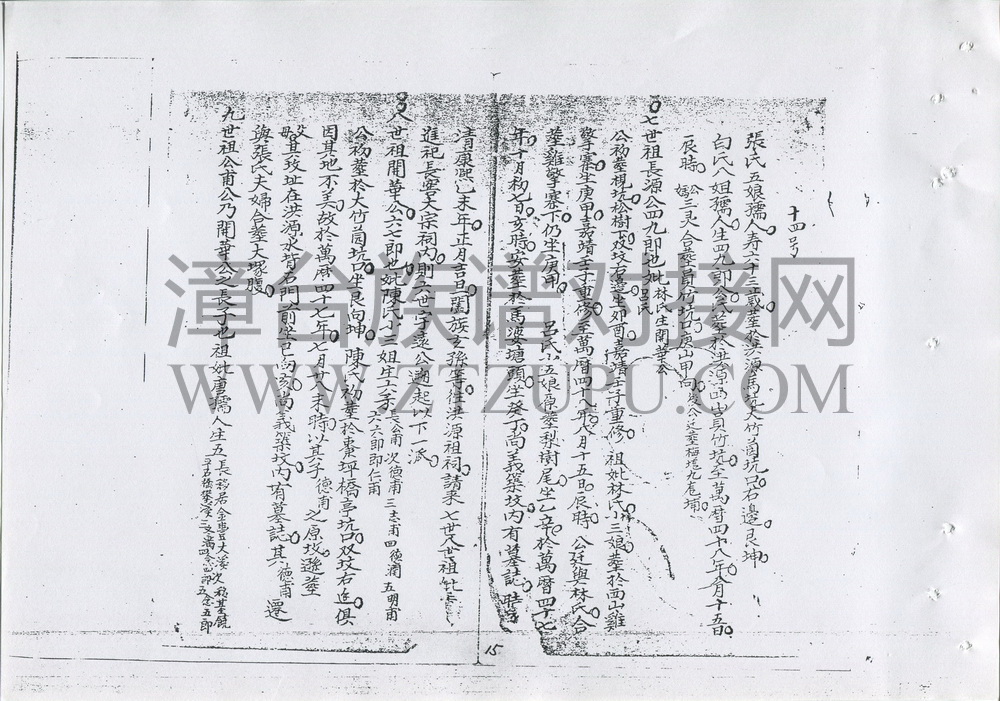 十四号
張氏五娘孺人寿六十三歲葬於洪源馬坑大竹茵坑口右邊艮坤
白氏八姐孺人生四九郎公公葬於洪源 貢竹坑至萬曆四十八年八月十五日
辰時 公媽三灵人合葬員竹坑口庚山甲向
七世祖長源公四九郎也妣林氏呂氏生開華公
公初葬梘坑松樹下双坟右邊坐卯酉嘉靖壬子重修 祖妣林氏小三娘葬於面山雞
擎寨坐庚甲嘉靖壬子重修至萬曆四十八年八月十五日辰時 公迁與林氏合
葬雞擎寨下仍坐庚甲 呂氏小五娘原葬梨樹尾坐乙辛於萬曆四十七
年十月初七日亥時安葬於馬婆塘頭坐癸丁尚義築坟内有墓誌
清康熙己未年正月吉旦闔族玄孫等往洪源祖祠請來七世八世祖妣
進祀長窖大宗祠内則六世字遠公遡起以下一派
八世祖開華公六七郎也妣陳氏小三姐生六子長公甫 次德甫 三志甫 四 五明甫 六六郎即仁甫
公初葬於大竹茵坑口坐艮向坤 陳氏初葬於棗坪橋亭坑口双坟右邊俱
因其地不美故於萬曆四十七年七月廿八未時以其子德甫之原坟遜葬
父母其坟址在洪源水背石門前坐巳向亥尚義築坟内有墓誌其德甫還
與張氏夫婦合葬大塚腹
九世祖公甫公乃開華公之長子也祖妣唐孺人生五長移居金豐大溪次
15
漳台族谱对接网
WWW.ZTZUPU.COM